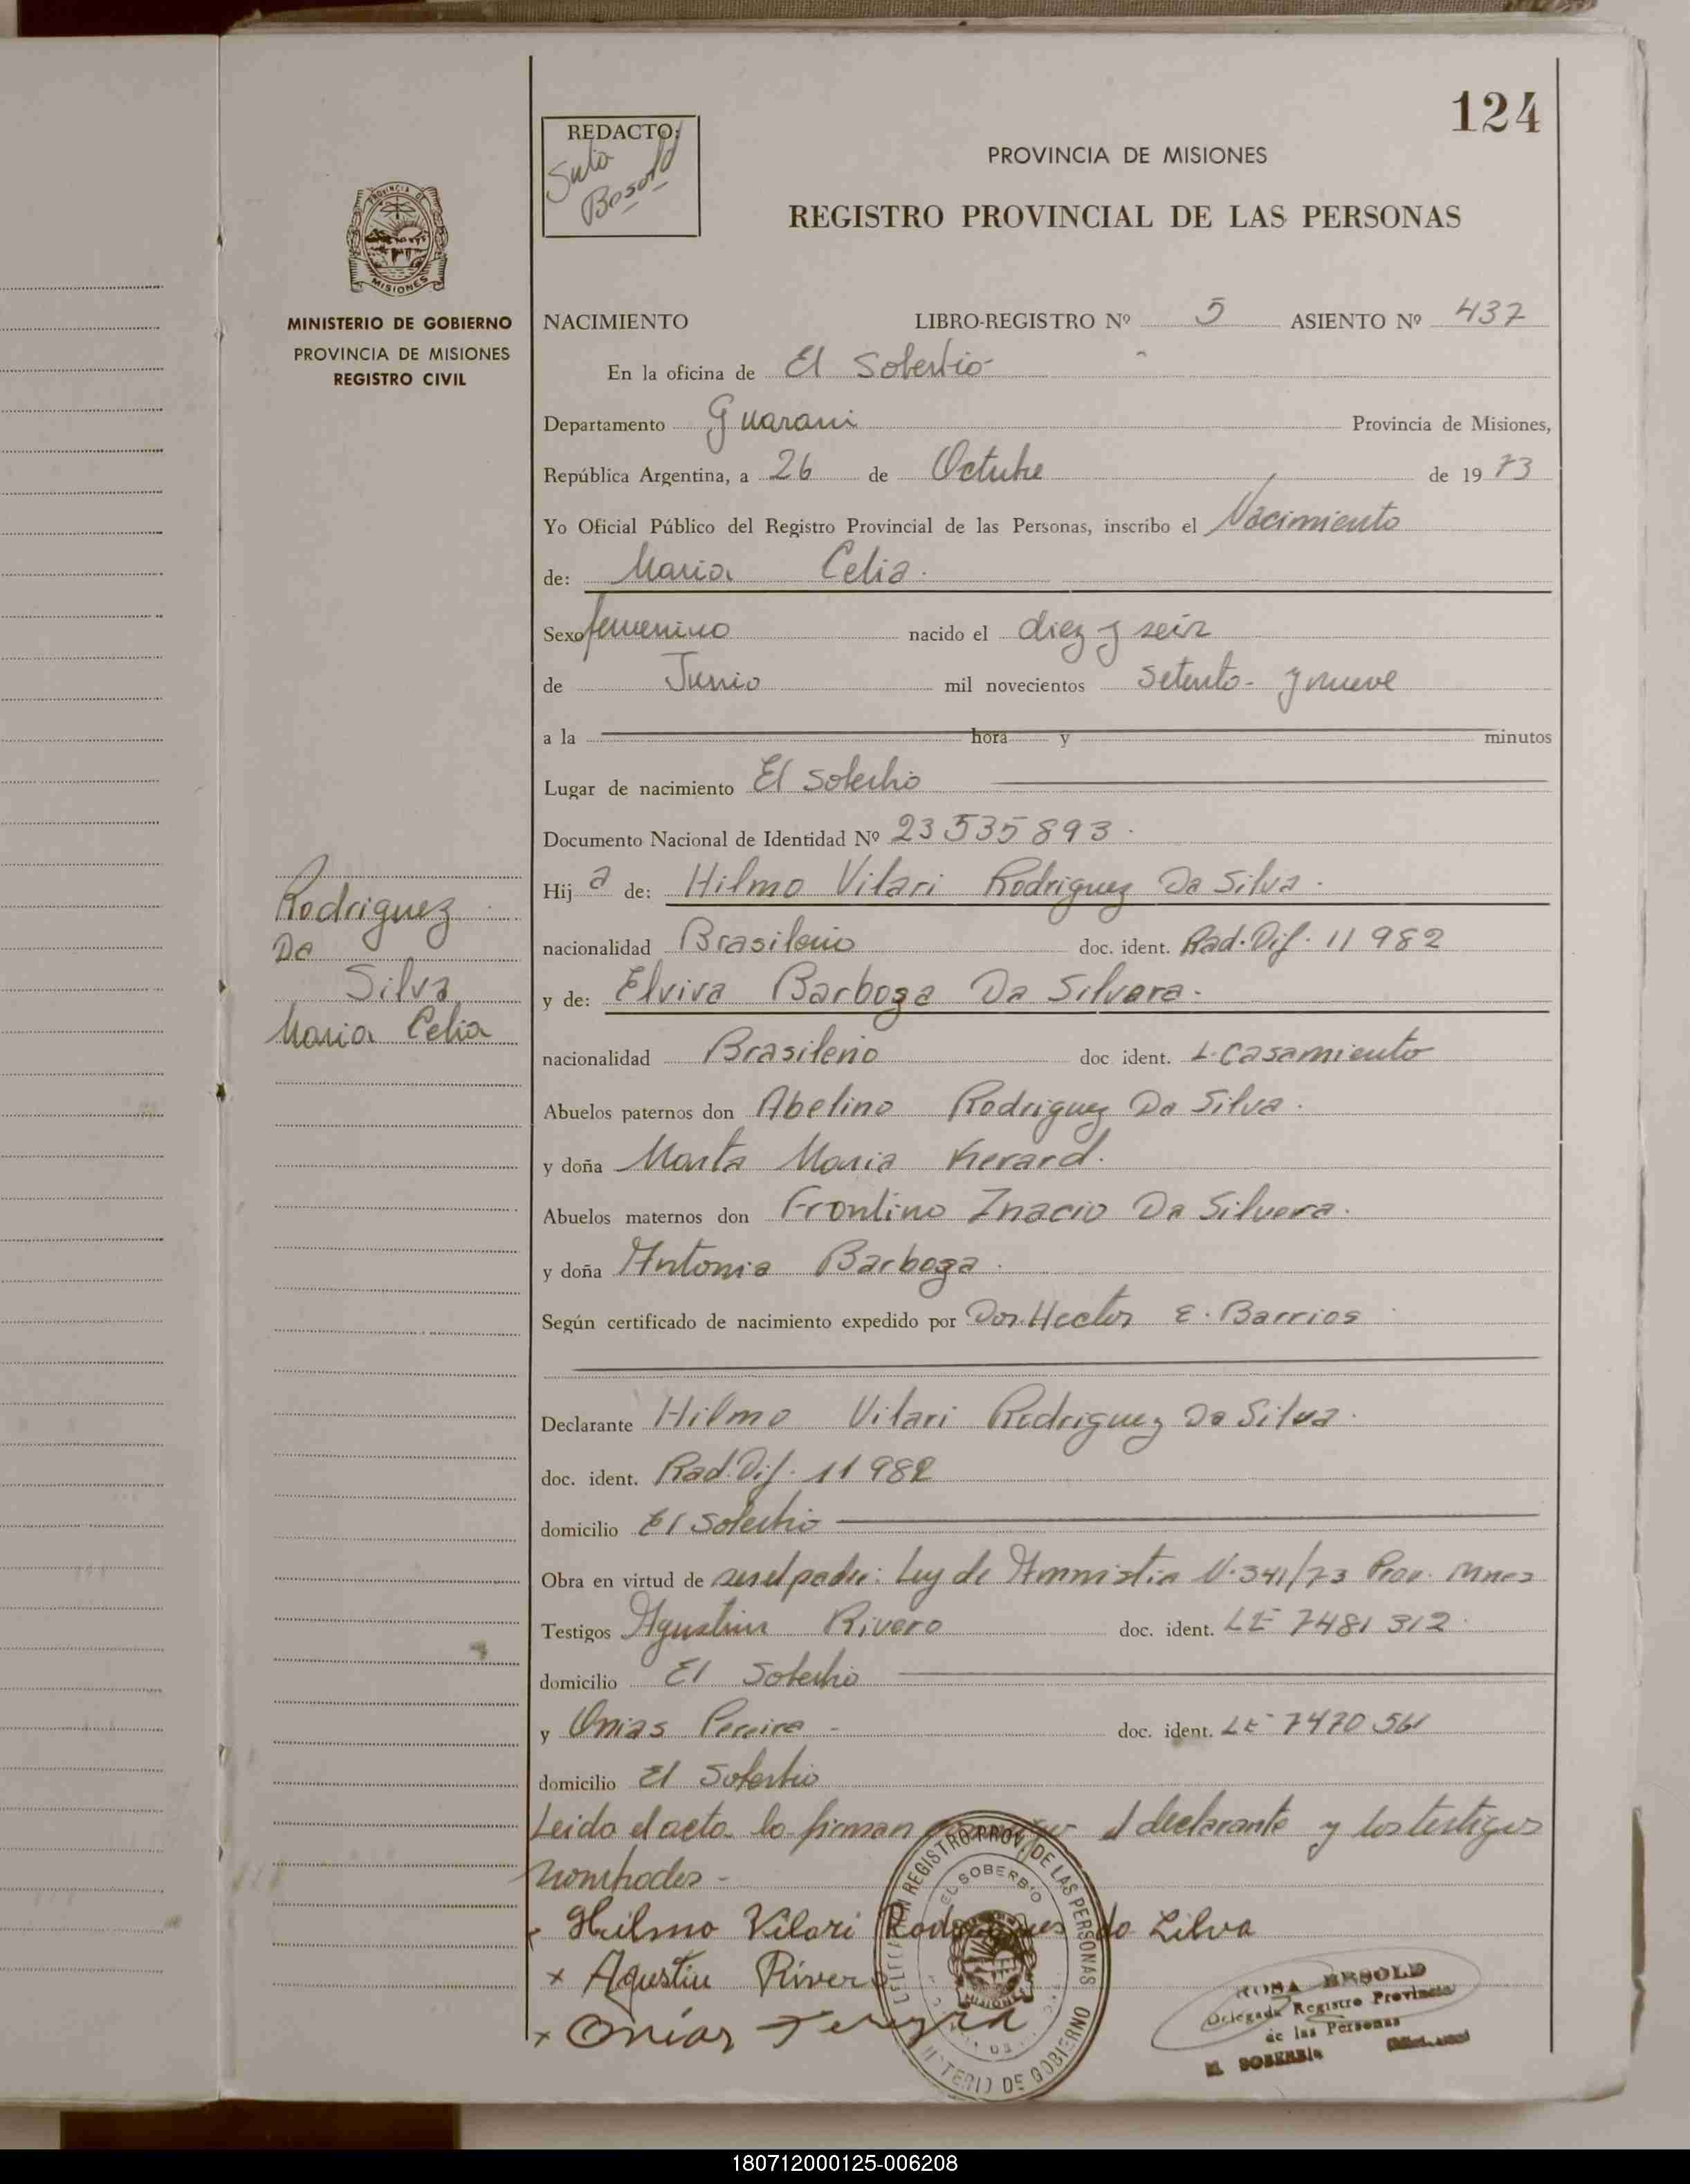 124
REDACTO:
PROVINCIA DE MISIONES
REGISTRO PROVINCIAL DE LAS PERSONAS
PROVINCIA DE
MISIONES
MINISTERIO DE GOBIERNO
PROVINCIA DE MISIONES
REGISTRO CIVIL
NACIMIENTO LIBRO-REGISTRO Nº 5 ASIENTO Nº 437
En la oficina de El Soberbio
Departamento Guarani Provincia de Misiones,
República Argentina, a 26 de Octubre de 19 73
Yo Oficial Público del Registro Provincial de las Personas, inscribo el Nacimiento
de: Maria Celia.
Sexo femenino nacido el diez y seis
de Junio mil novecientos setenta y nueve
a la hora y minutos
Lugar de nacimiento El Soberbio
Documento Nacional de Identidad Nº 23 535 893.
Hij a de: Hilmo Vilari Rodriguez Da Silva.
nacionalidad Brasileño doc. ident. Rad. Dif. 11 982
y de: Elvira Barboza Da Silvera.
nacionalidad Brasileño doc ident. L. Casamiento
Abuelos paternos don Abelino Rodriguez Da Silva.
y doña Marta Maria Kerard.
Abuelos maternos don Frontino Inacio Da Silvera.
y doña Antonia Barboza.
Según certificado de nacimiento expedido por Dor. Hector E. Barrios
Rodriguez
Da
Silva
Maria Celia
Declarante Hilmo Vilari Rodriguez Da Silva.
doc. ident. Rad. Dif. 11 982
domicilio El Soberbio
Obra en virtud de ser el padre: Ley de Amnistia N. 341/73 Prov. Mnes
Testigos Agustin Rivero doc. ident. LE 7481 312.
domicilio El Soberbio
y Onias Pereira - doc. ident. LE 7470 561
domicilio El Soberbio
Leido el acta lo firman el declarante y los testigos
nombrados -
Hilmo Vilari Rodrigues da Silva
x Agustin Rivero
x Onias Pereira
REGISTRO PROV. DE LAS PERSONAS
EL SOBERBIO
MISIONES
MINISTERIO DE GOBIERNO
ROSA BESOLD
Delegada Registro Provincial
de las Personas
EL SOBERBIO
180712000125-006208